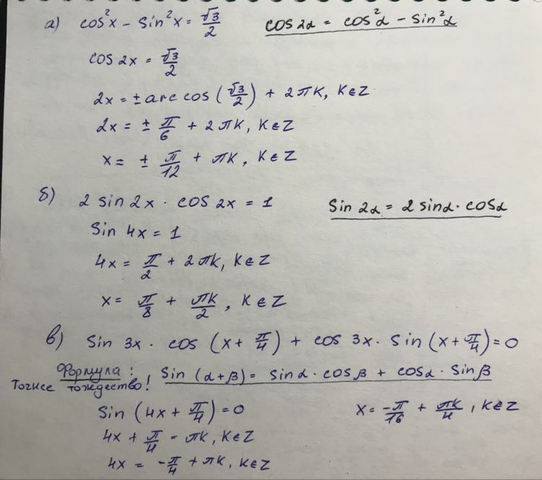 а) cos²x - sin²x = √3/2   cos 2α = cos²α - sin²α
cos 2x = √3/2
2x = ± arc cos (√3/2) + 2πk, k∈Z
2x = ± π/6 + 2πk, k∈Z
x = ± π/12 + πk, k∈Z
б) 2 sin 2x · cos 2x = 1   Sin 2α = 2 sinα · cosα
Sin 4x = 1
4x = π/2 + 2πk, k∈Z
x = π/8 + πk/2, k∈Z
в) Sin 3x · cos (x + π/4) + cos 3x · Sin (x + π/4) = 0
Формула: Sin (α+β) = Sinα · cosβ + cosα · Sinβ
Точнее тождество!
Sin (4x + π/4) = 0   x = -π/16 + πk/4, k∈Z
4x + π/4 = πk, k∈Z
4x = -π/4 + πk, k∈Z